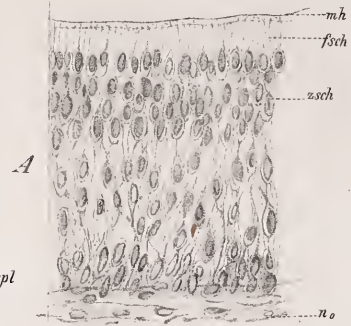 mh
fsch
zsch
A
pl
no